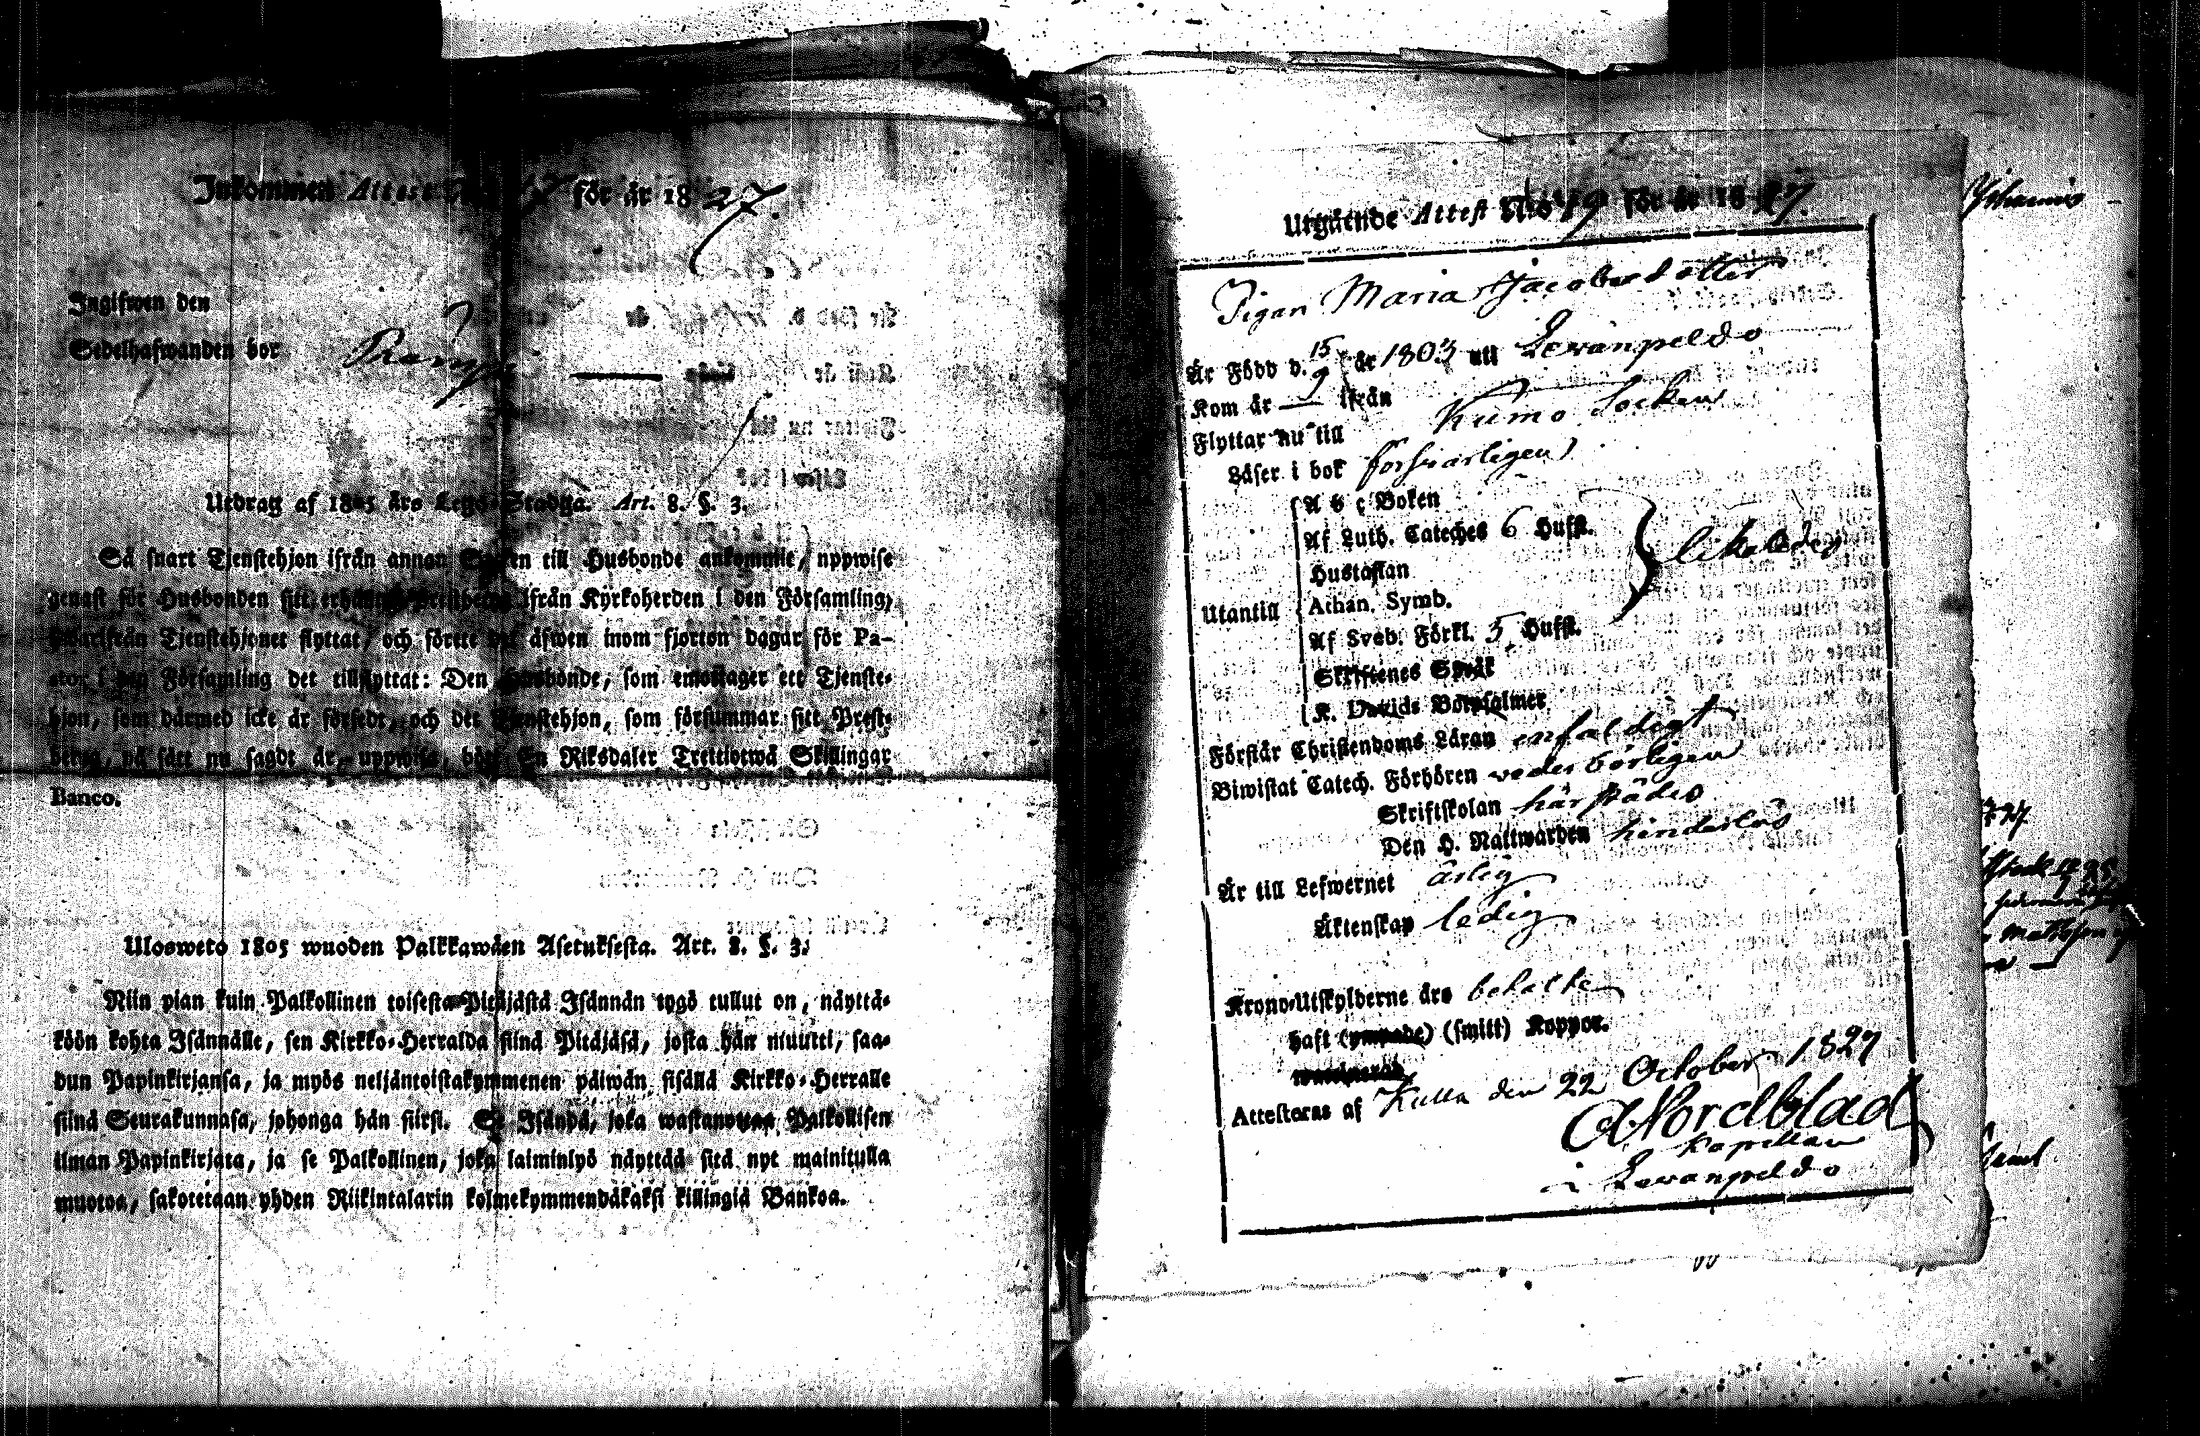 Inkommen Attest för år 1827.
Ingifwen den
Sedelhafwanden bor
Utdrag af 1805 års Lego-Stadga. Art. 8. §. 3.
Så snart Tjenstehjon ifrån annan Socken till Husbonde ankommit, uppwise
genast för Husbonden sitt ifrån Kyrkoherden i den Församling,
hwarifrån Tjenstehjonet flyttat, och förete det äfwen inom fjorton dagar för Pa-
stor i den Församling det tillflyttat: Den Husbonde, som emottager ett Tjenste-
hjon, som därmed icke är försedt, och det Tjenstehjon, som försummar sitt Prest-
betyg, på sätt nu sagdt är, uppwisa, böte En Riksdaler Trettiotwå Skillingar
Banco.
Ulosweto 1805 wuoden Palkkawäen Asetuksesta. Art. 8. §. 3.
Niin pian kuin Palkollinen toisesta Pitäjästä Isännän tygö tullut on, näyttä-
köön kohta Isännälle, sen Kirkko-Herralda siinä Pitäjäsä, josta hän muutti, saa-
dun Papinkirjansa, ja myös neljäntoistakymmenen päiwän sisällä Kirkko-Herralle
siinä Seurakunnasa, johonga hän siirsi. Se Isändä, joka wastanottaa Palkollisen
ilman Papinkirjata, ja se Palkollinen, joka laiminlyö näyttää sitä nyt mainitulla
muotoa, sakotetaan yhden Riikintalarin kolmekymmendäkaksi killingiä Bankoa.
Utgående Attest N:o 19 för år 1827.
Pigan Maria Jacobsdotter
Är Född d. 15/9 år 1803 uti Lewanpeldo
Kom år — ifrån
Flyttar nu till Kumo Socken
Läser i bok försvarligen
A b c Boken
Af Luth. Cateches 6 Hufst.
Hustaflan
Utantill Athan. Symb. likaledes
Af Sveb. Förkl. 5 Hufst.
Skriftenes Språk
K. Davids Botpsalmer
Förstår Christendoms Läran enfaldigt
Biwistat Catech. Förhören wederbörligen
Skriftskolan härstädes
Den H. Nattwarden hinderlös
Är till Lefwernet ärlig
Äktenskap ledig
Krono-Utskylderne äro betalte
haft (ympade) (smitt) Koppor.
Attesteras af Kulla den 22 October 1827
A Nordblad
Kapellan
i Lewanpeldo